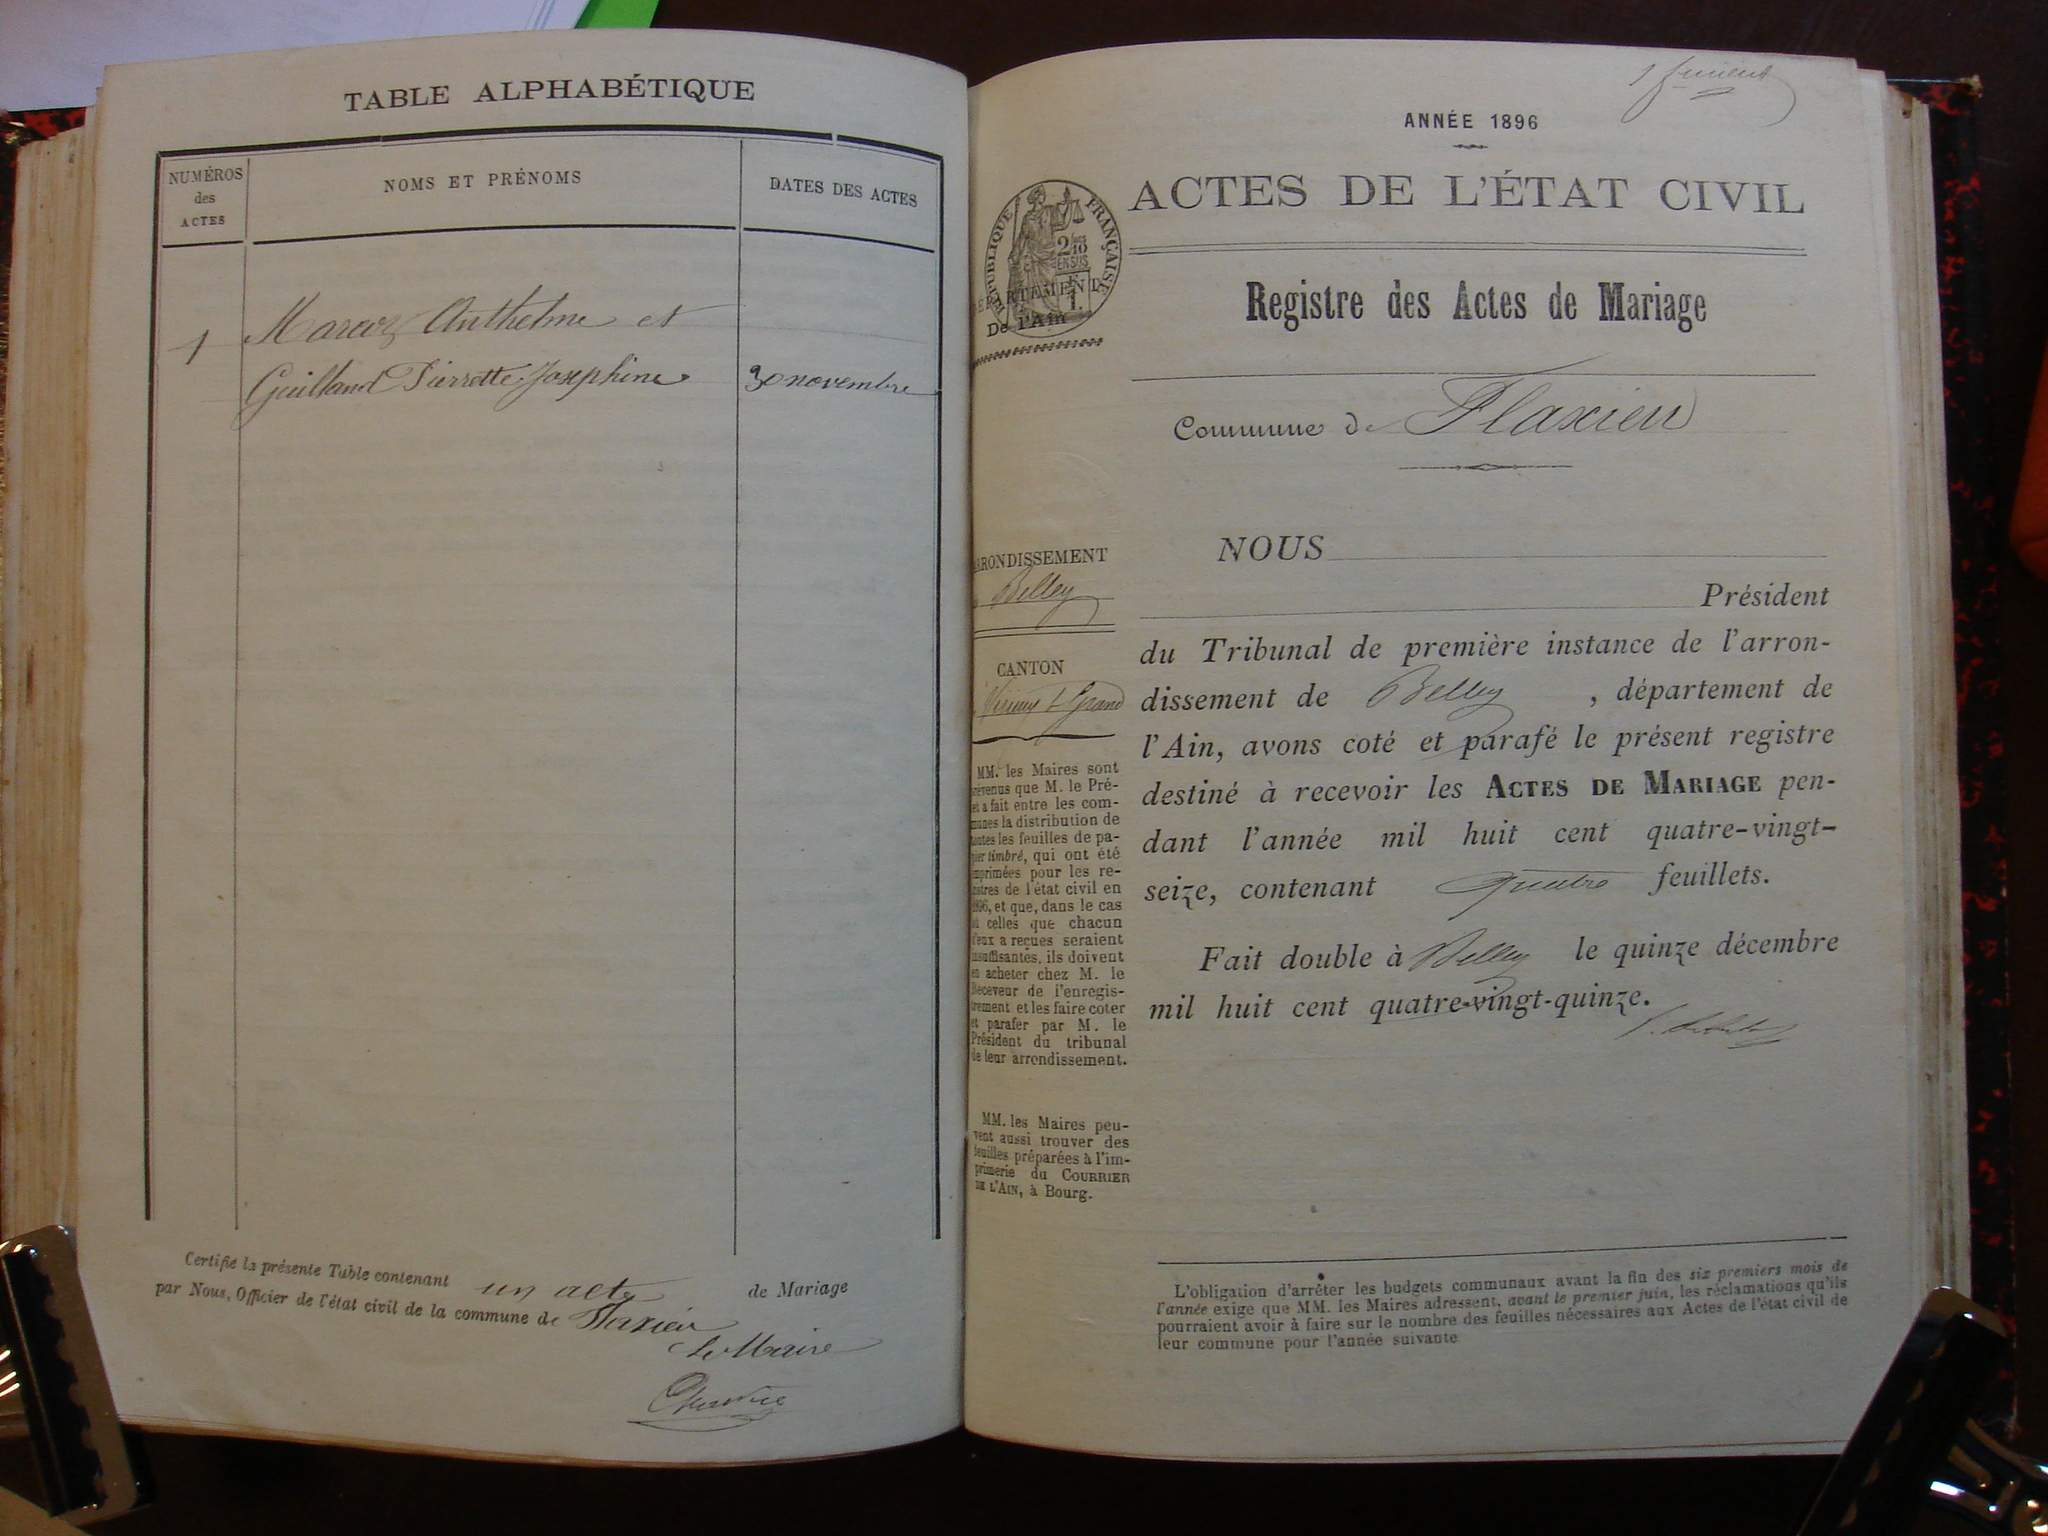 TABLE ALPHABÉTIQUE
NUMÉROS
des
ACTES
NOMS ET PRÉNOMS
DATES DES ACTES
1
Marcoz Anthelme et
Guilland Pierrette Joséphine
30 novembre
Certifié la présente Table contenant un acte de Mariage
par Nous, Officier de l'état civil de la commune de Flaxieu
Le Maire
1
ANNÉE 1896
ACTES DE L'ÉTAT CIVIL
RÉPUBLIQUE FRANÇAISE
2/10
EN SUS
DÉPARTEMENT
De l'Ain
Registre des Actes de Mariage
Commune de Flaxieu
ARRONDISSEMENT
Belley
CANTON
Virieu le Grand
MM. les Maires sont
prévenus que M. le Pré-
et a fait entre les com-
munes la distribution de
toutes les feuilles de pa-
pier timbré, qui ont été
imprimées pour les re-
gistres de l'état civil en
1896, et que, dans le cas
où celles que chacun
d'eux a reçues seraient
insuffisantes, ils doivent
en acheter chez M. le
Receveur de l'enregis-
trement et les faire coter
et parafer par M. le
Président du tribunal
de leur arrondissement.
MM. les Maires peu-
vent aussi trouver des
feuilles préparées à l'im-
primerie du COURRIER
DE L'AIN, à Bourg.
NOUS
Président
du Tribunal de première instance de l'arron-
dissement de Belley, département de
l'Ain, avons coté et parafé le présent registre
destiné à recevoir les ACTES DE MARIAGE pen-
dant l'année mil huit cent quatre-vingt-
seize, contenant quatre feuillets.
Fait double à Belley le quinze décembre
mil huit cent quatre-vingt-quinze.
L'obligation d'arrêter les budgets communaux avant la fin des six premiers mois de
l'année exige que MM. les Maires adressent, avant le premier juin, les réclamations qu'ils
pourraient avoir à faire sur le nombre des feuilles nécessaires aux Actes de l'état civil de
leur commune pour l'année suivante